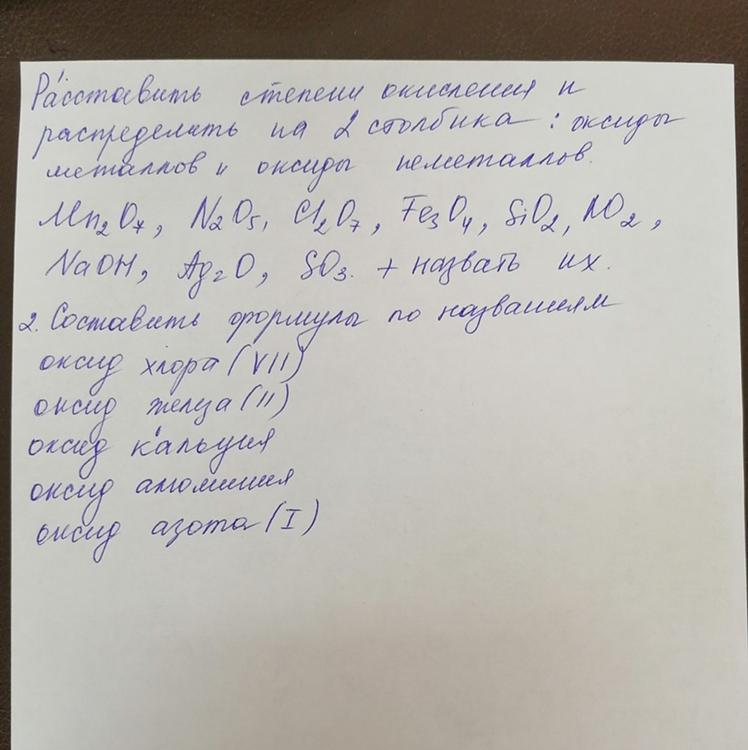 Расставить степени окисления и
распределить на 2 столбика: оксиды
металлов и оксиды неметаллов.
Mn₂O₇, N₂O₅, Cl₂O₇, Fe₃O₄, SiO₂, NO₂,
NaOH, Ag₂O, SO₃. + назвать их.
2. Составить формулы по названиям
оксид хлора (VII)
оксид желза (II)
оксид кальция
оксид алюминия
оксид азота (I)